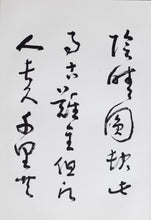 陰晴圓缺此
事古難全但願
人長久千里共